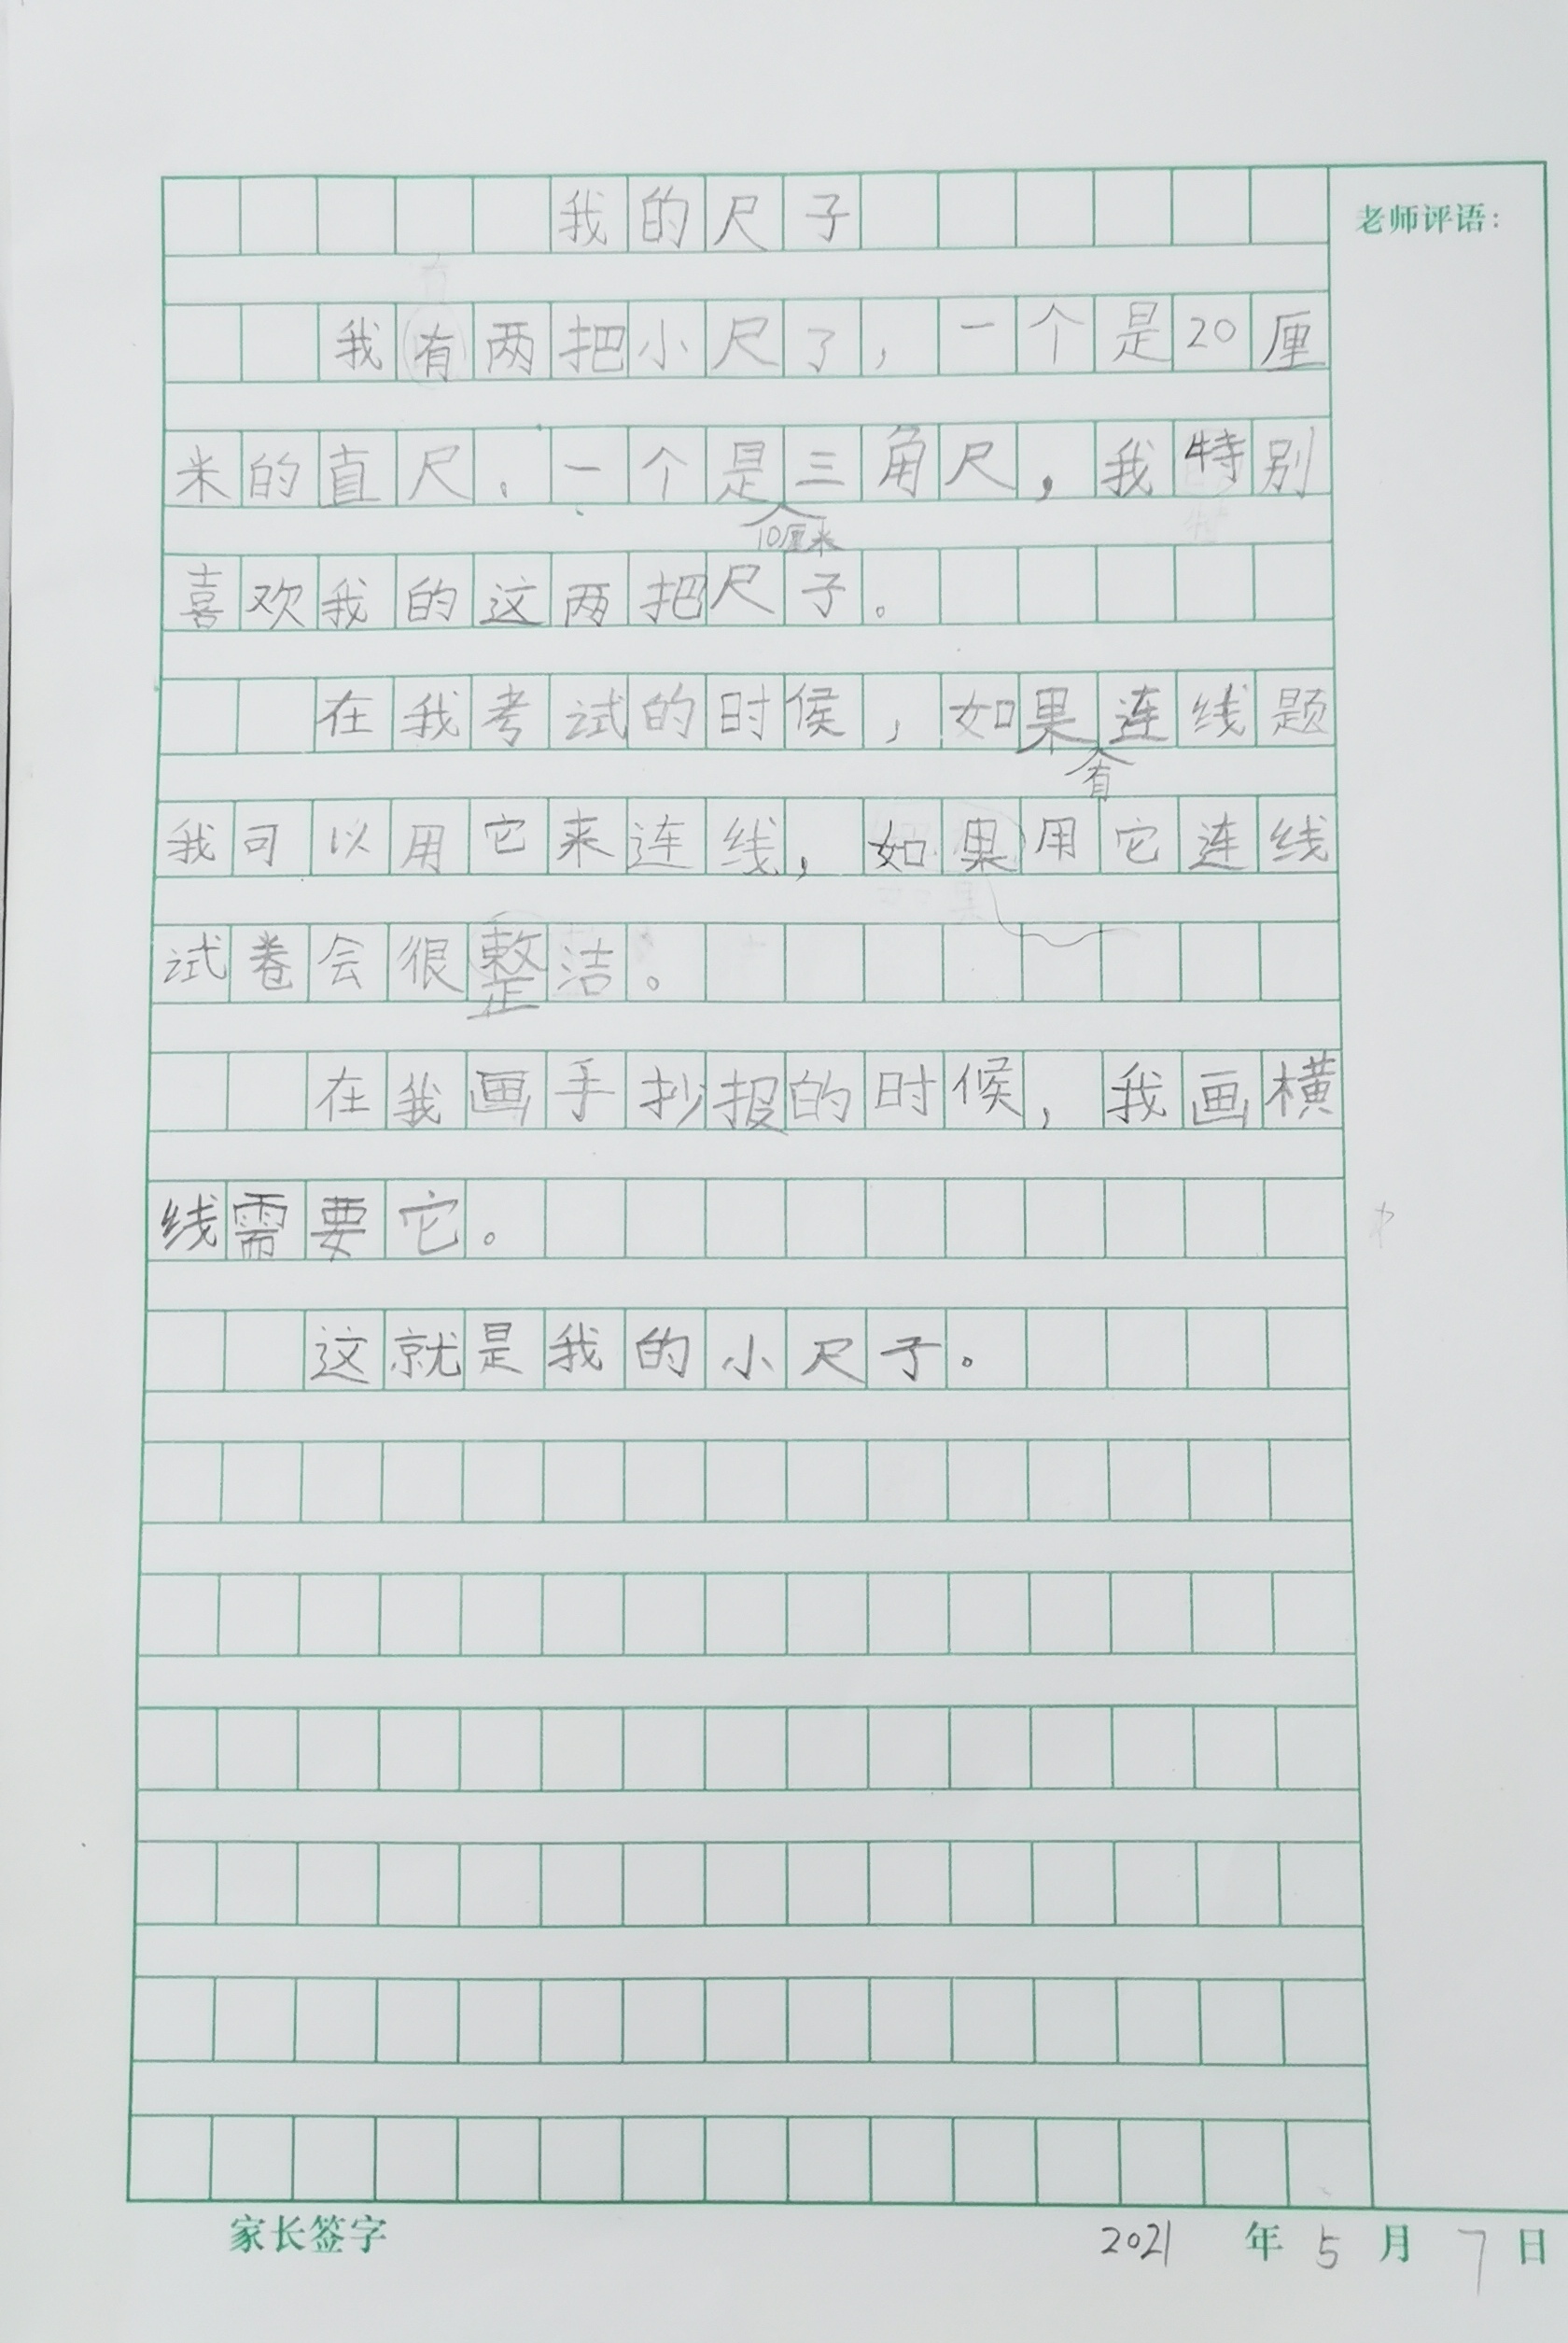 我的尺子
老师评语：
我有两把小尺了，一个是20厘
米的直尺、一个是三角尺，我特别
10厘米
喜欢我的这两把尺子。
在我考试的时候，如果连线题
有
我可以用它来连线，如果用它连线
试卷会很整洁。
在我画手抄报的时候，我画横
线需要它。
这就是我的小尺子。
家长签字 2021 年 5 月 7 日